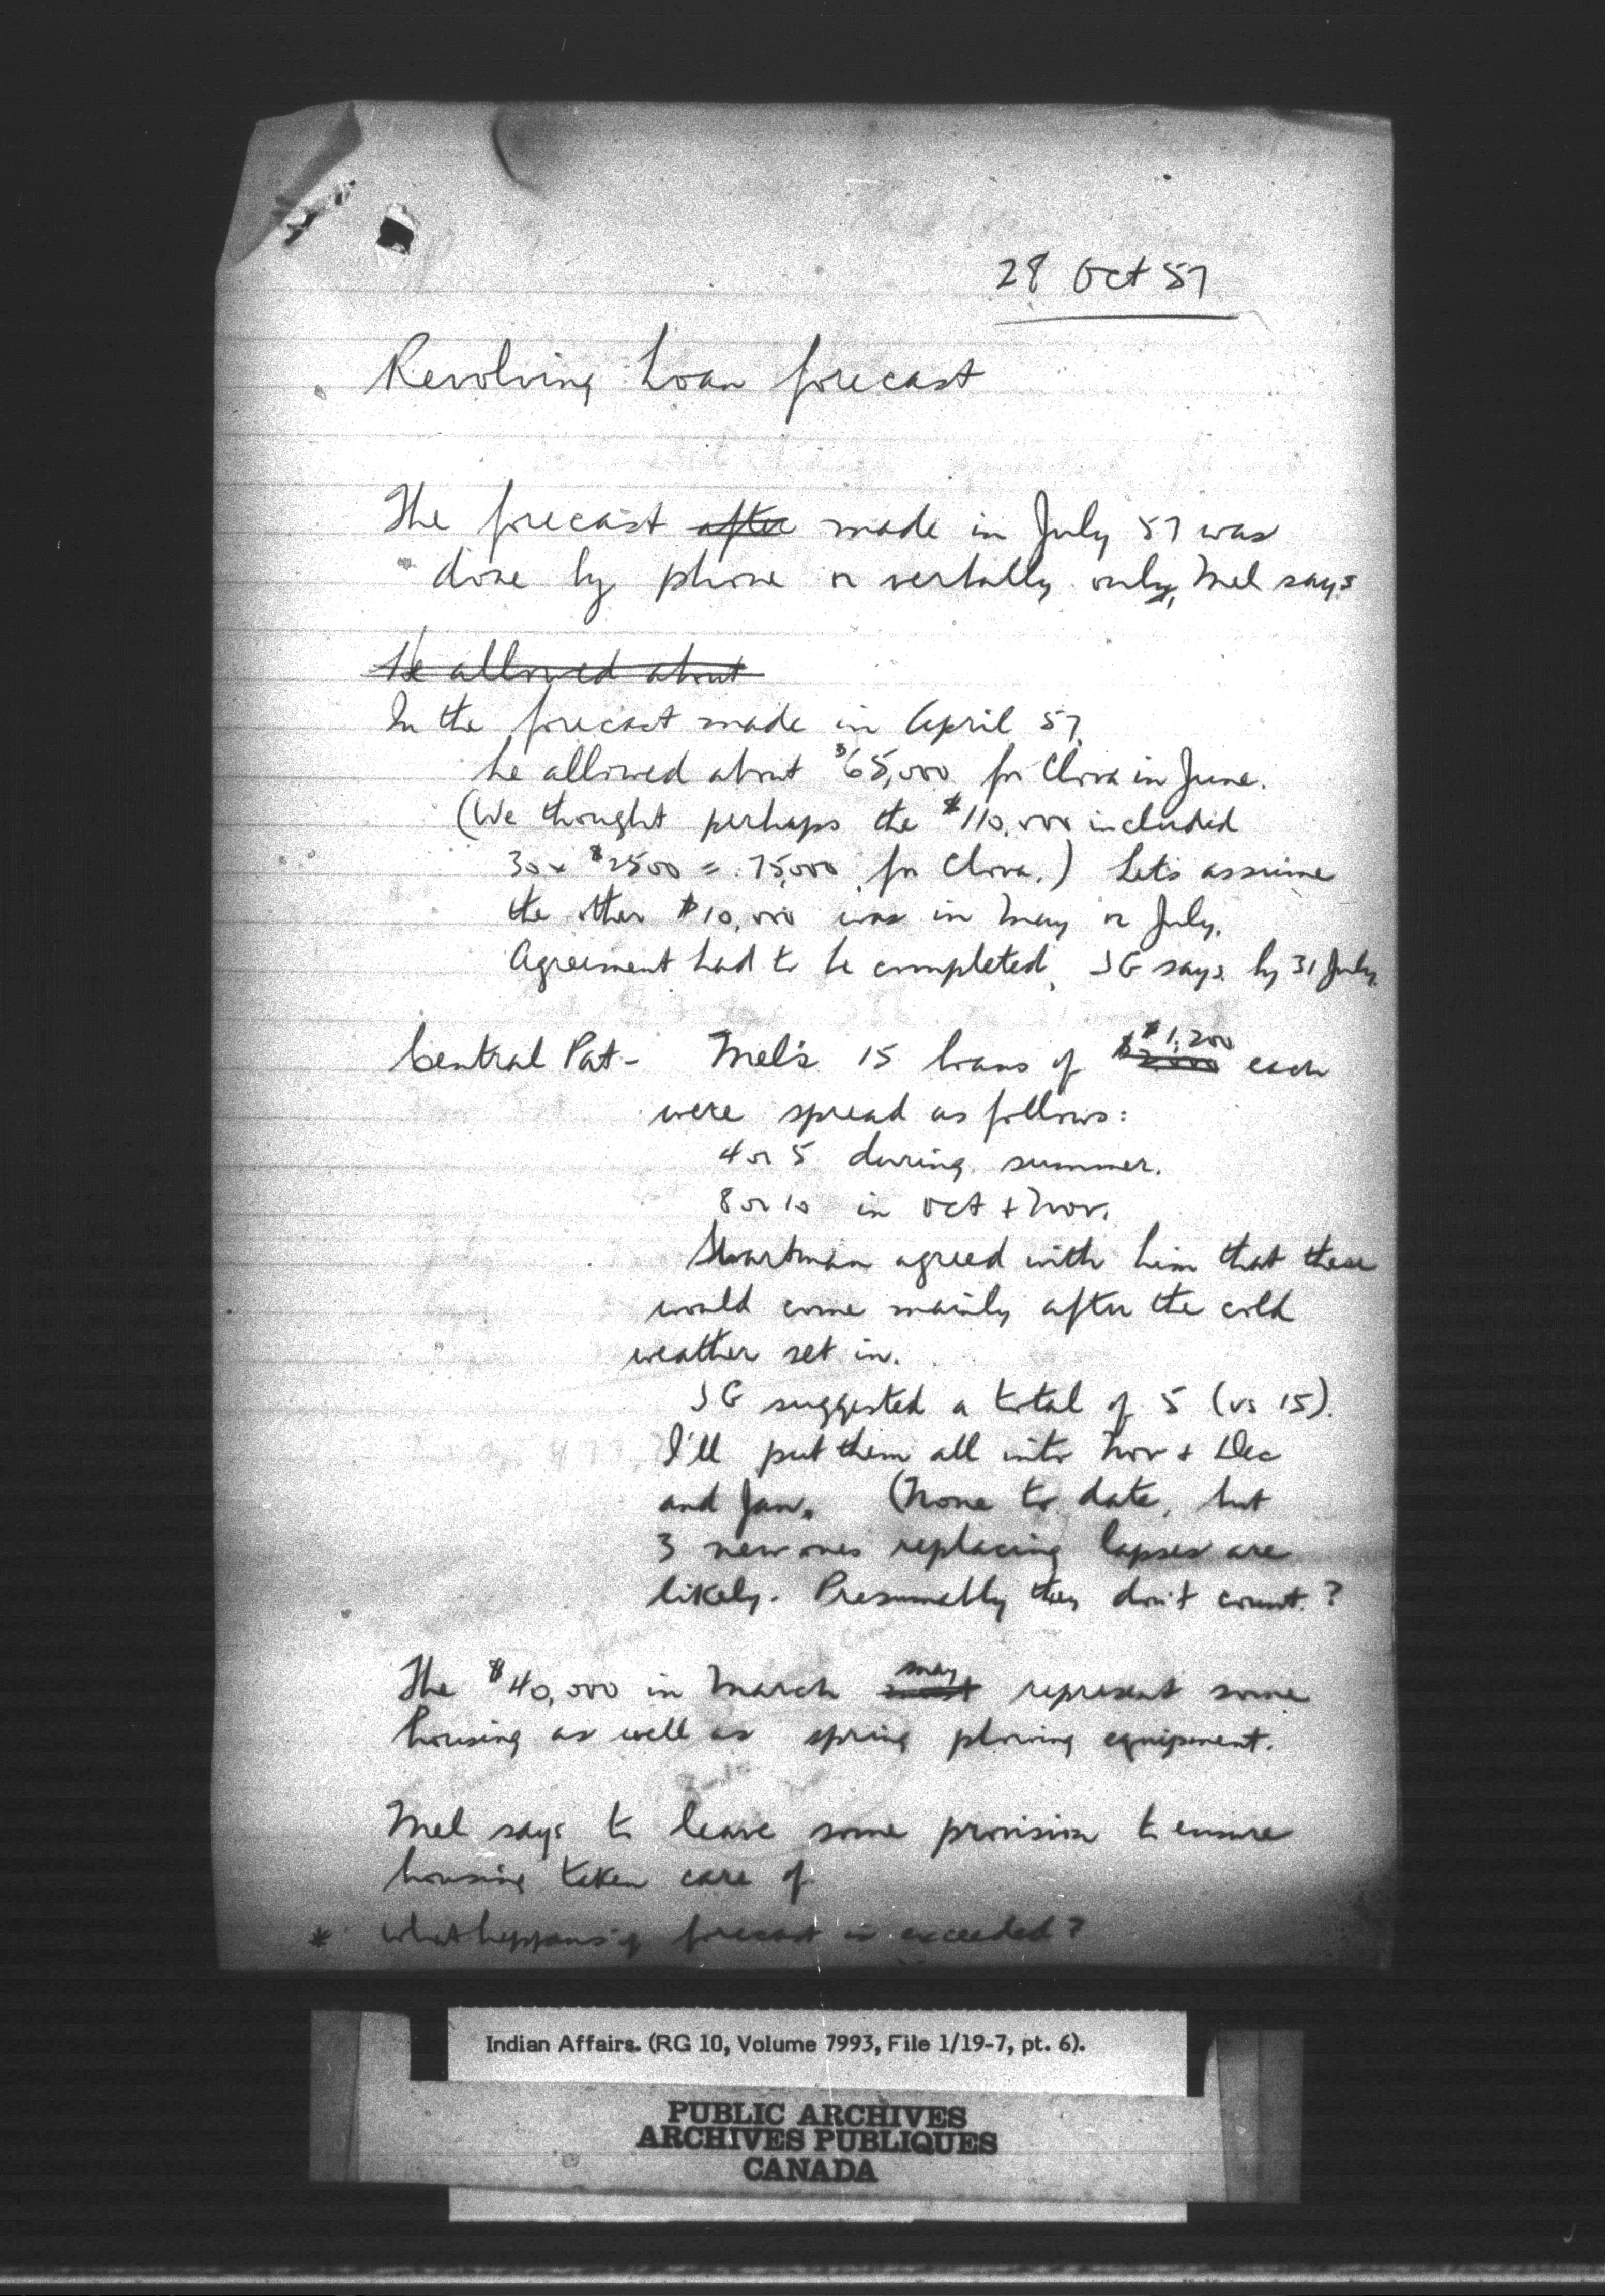 28 Oct 57
Revolving Loan forecast
The forecast after made in July 57 was
done by phone or verbally only, Mel says
He allowed about
In the forecast made in April 57,
he allowed about $65,000 for Clova in June.
(We thought perhaps the $110,000 included
30 x $2500 = 75,000 for Clova.) Let's assume
the other $10,000 was in May or July.
Agreement had to be completed, JG says, by 31 July.
$1,200
Central Pat - Mel's 15 loans of $2000 each
were spread as follows:
4 or 5 during summer.
8 or 10 in Oct + Nov.
Swartman agreed with him that these
would come mainly after the cold
weather set in.
JG suggested a total of 5 (vs 15).
I'll put them all into Nov + Dec
and Jan. (None to date, but
3 new ones replacing lapses are
likely. Presumably they don't count.?
may
The $40,000 in March must represent some
housing as well as spring plowing equipment.
Mel says to leave some provision to ensure
housing taken care of
* What happens if forecast is exceeded?
Indian Affairs. (RG 10, Volume 7993, File 1/19-7, pt. 6).
PUBLIC ARCHIVES
ARCHIVES PUBLIQUES
CANADA